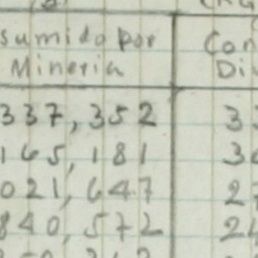 sumido por Con
Mineria Di
337,352 3
165,181 3
021,647 2
840,572 2